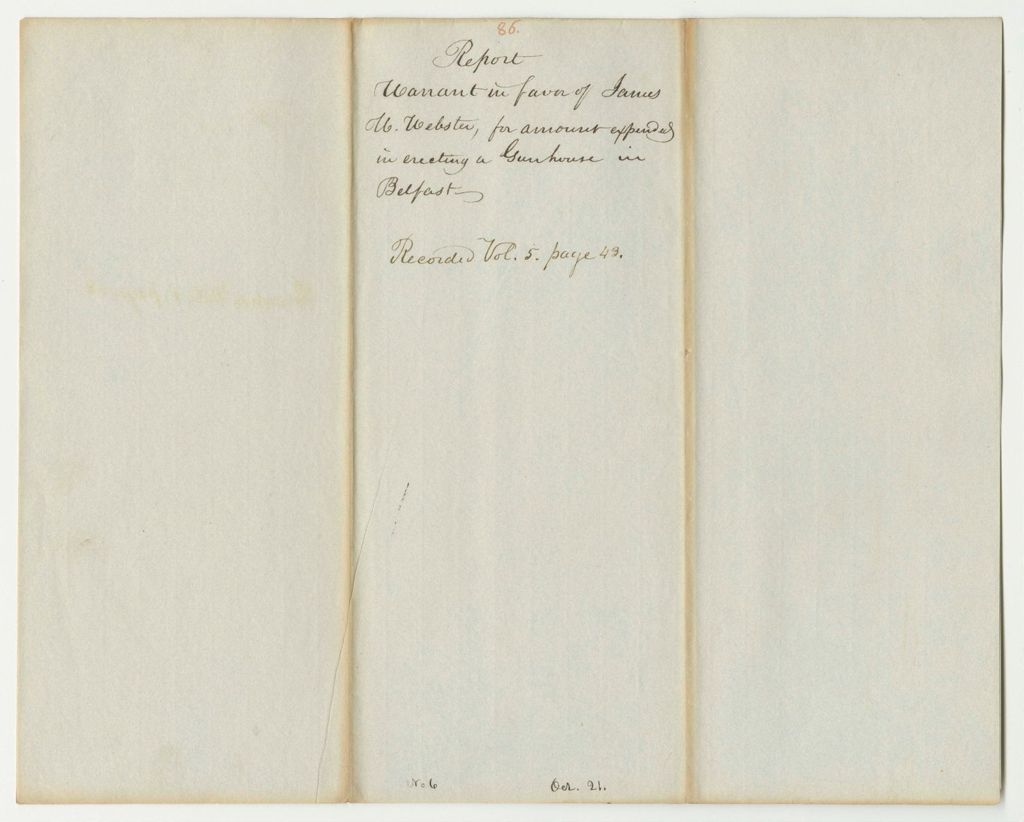 86.
Report
Warrant in favor of James
W. Webster, for amount expended
in erecting a Gunhouse in
Belfast
Recorded Vol. 5. page 43.
No 6
Oct. 21.